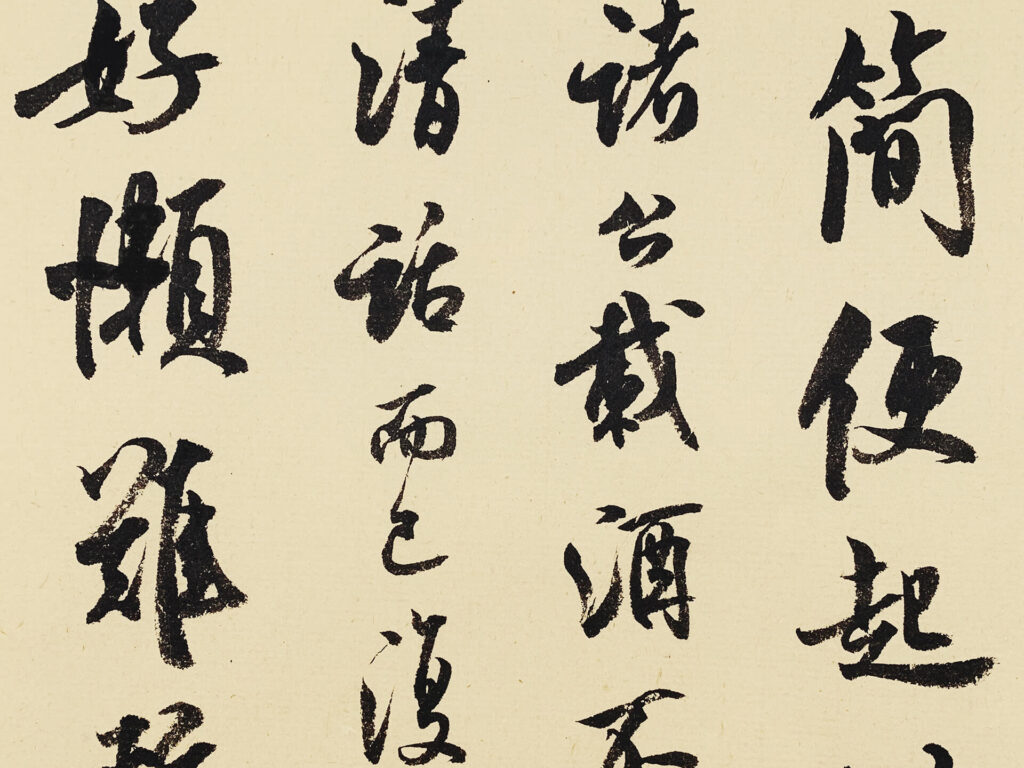 簡便起
諸公載酒不
清話而已復
好懶難